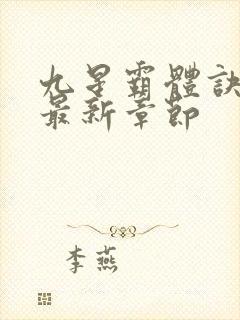 九星霸體訣
最新章節
李燕